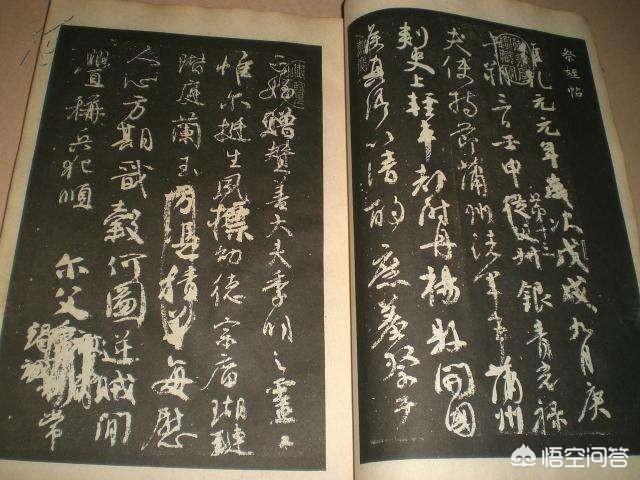 祭姪帖
維乾元元年歲次戊戌九月庚
午朔三日壬申第十三叔銀青光祿
夫使持節蒲州諸軍事蒲州
刺史上輕車都尉丹楊縣開國
侯真卿以清酌庶羞祭于
亡姪贈贊善大夫季明之靈曰
惟尔挺生夙標幼德宗廟瑚璉
階庭蘭玉方憑積善每慰
人心方期戩穀何圖逆賊閒
釁稱兵犯順 尔父 常
悟空问答